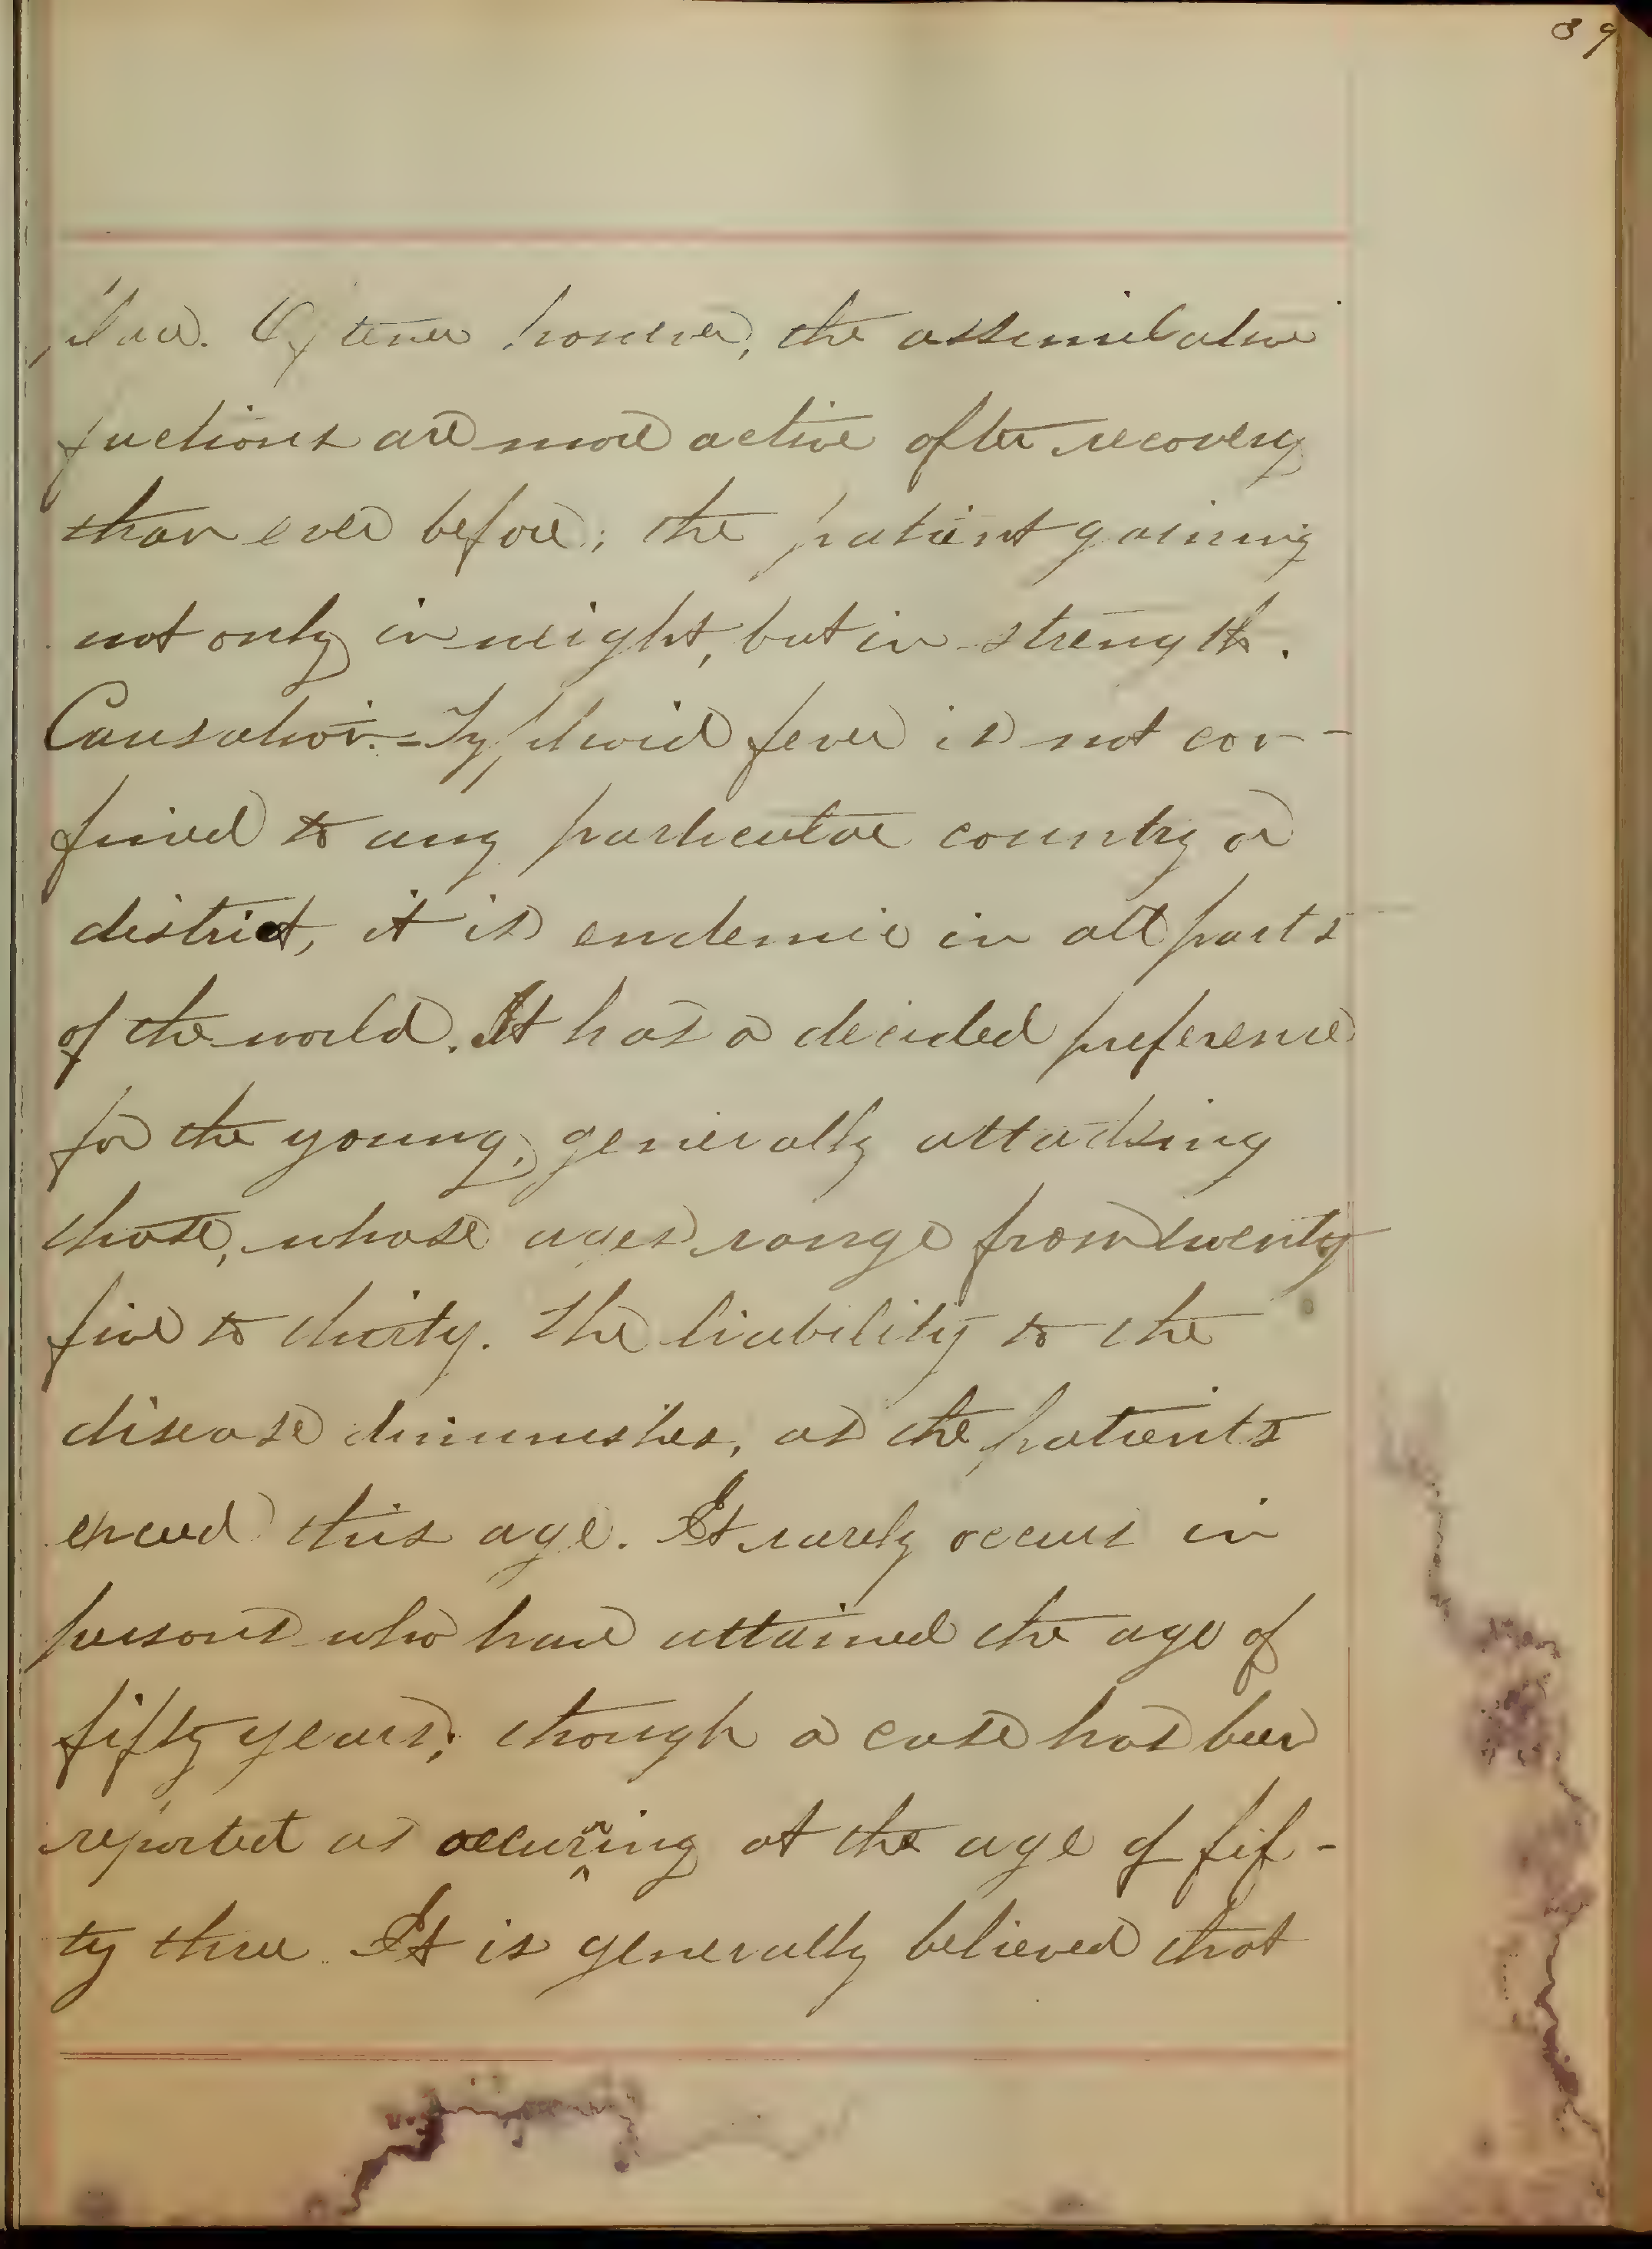 89
place. Oftener however, the assimilative
fuctions are more active after recovery
than ever before; the patient gaining
not only in weight, but in strength.
Causation.=Typhoid fever is not con-
fined to any particular country or
district, it is endemic in all parts
of the world. It has a decided preference
for the young, generally attacking
those, whose ages range from twenty
five to thirty. The liability to the
disease diminishes, as the patients
exceed this age. It rarely occurs in
persons who have attained the age of
fifty years; though a case has been
reported as occurring at the age of fif-
ty three. It is generally believed that